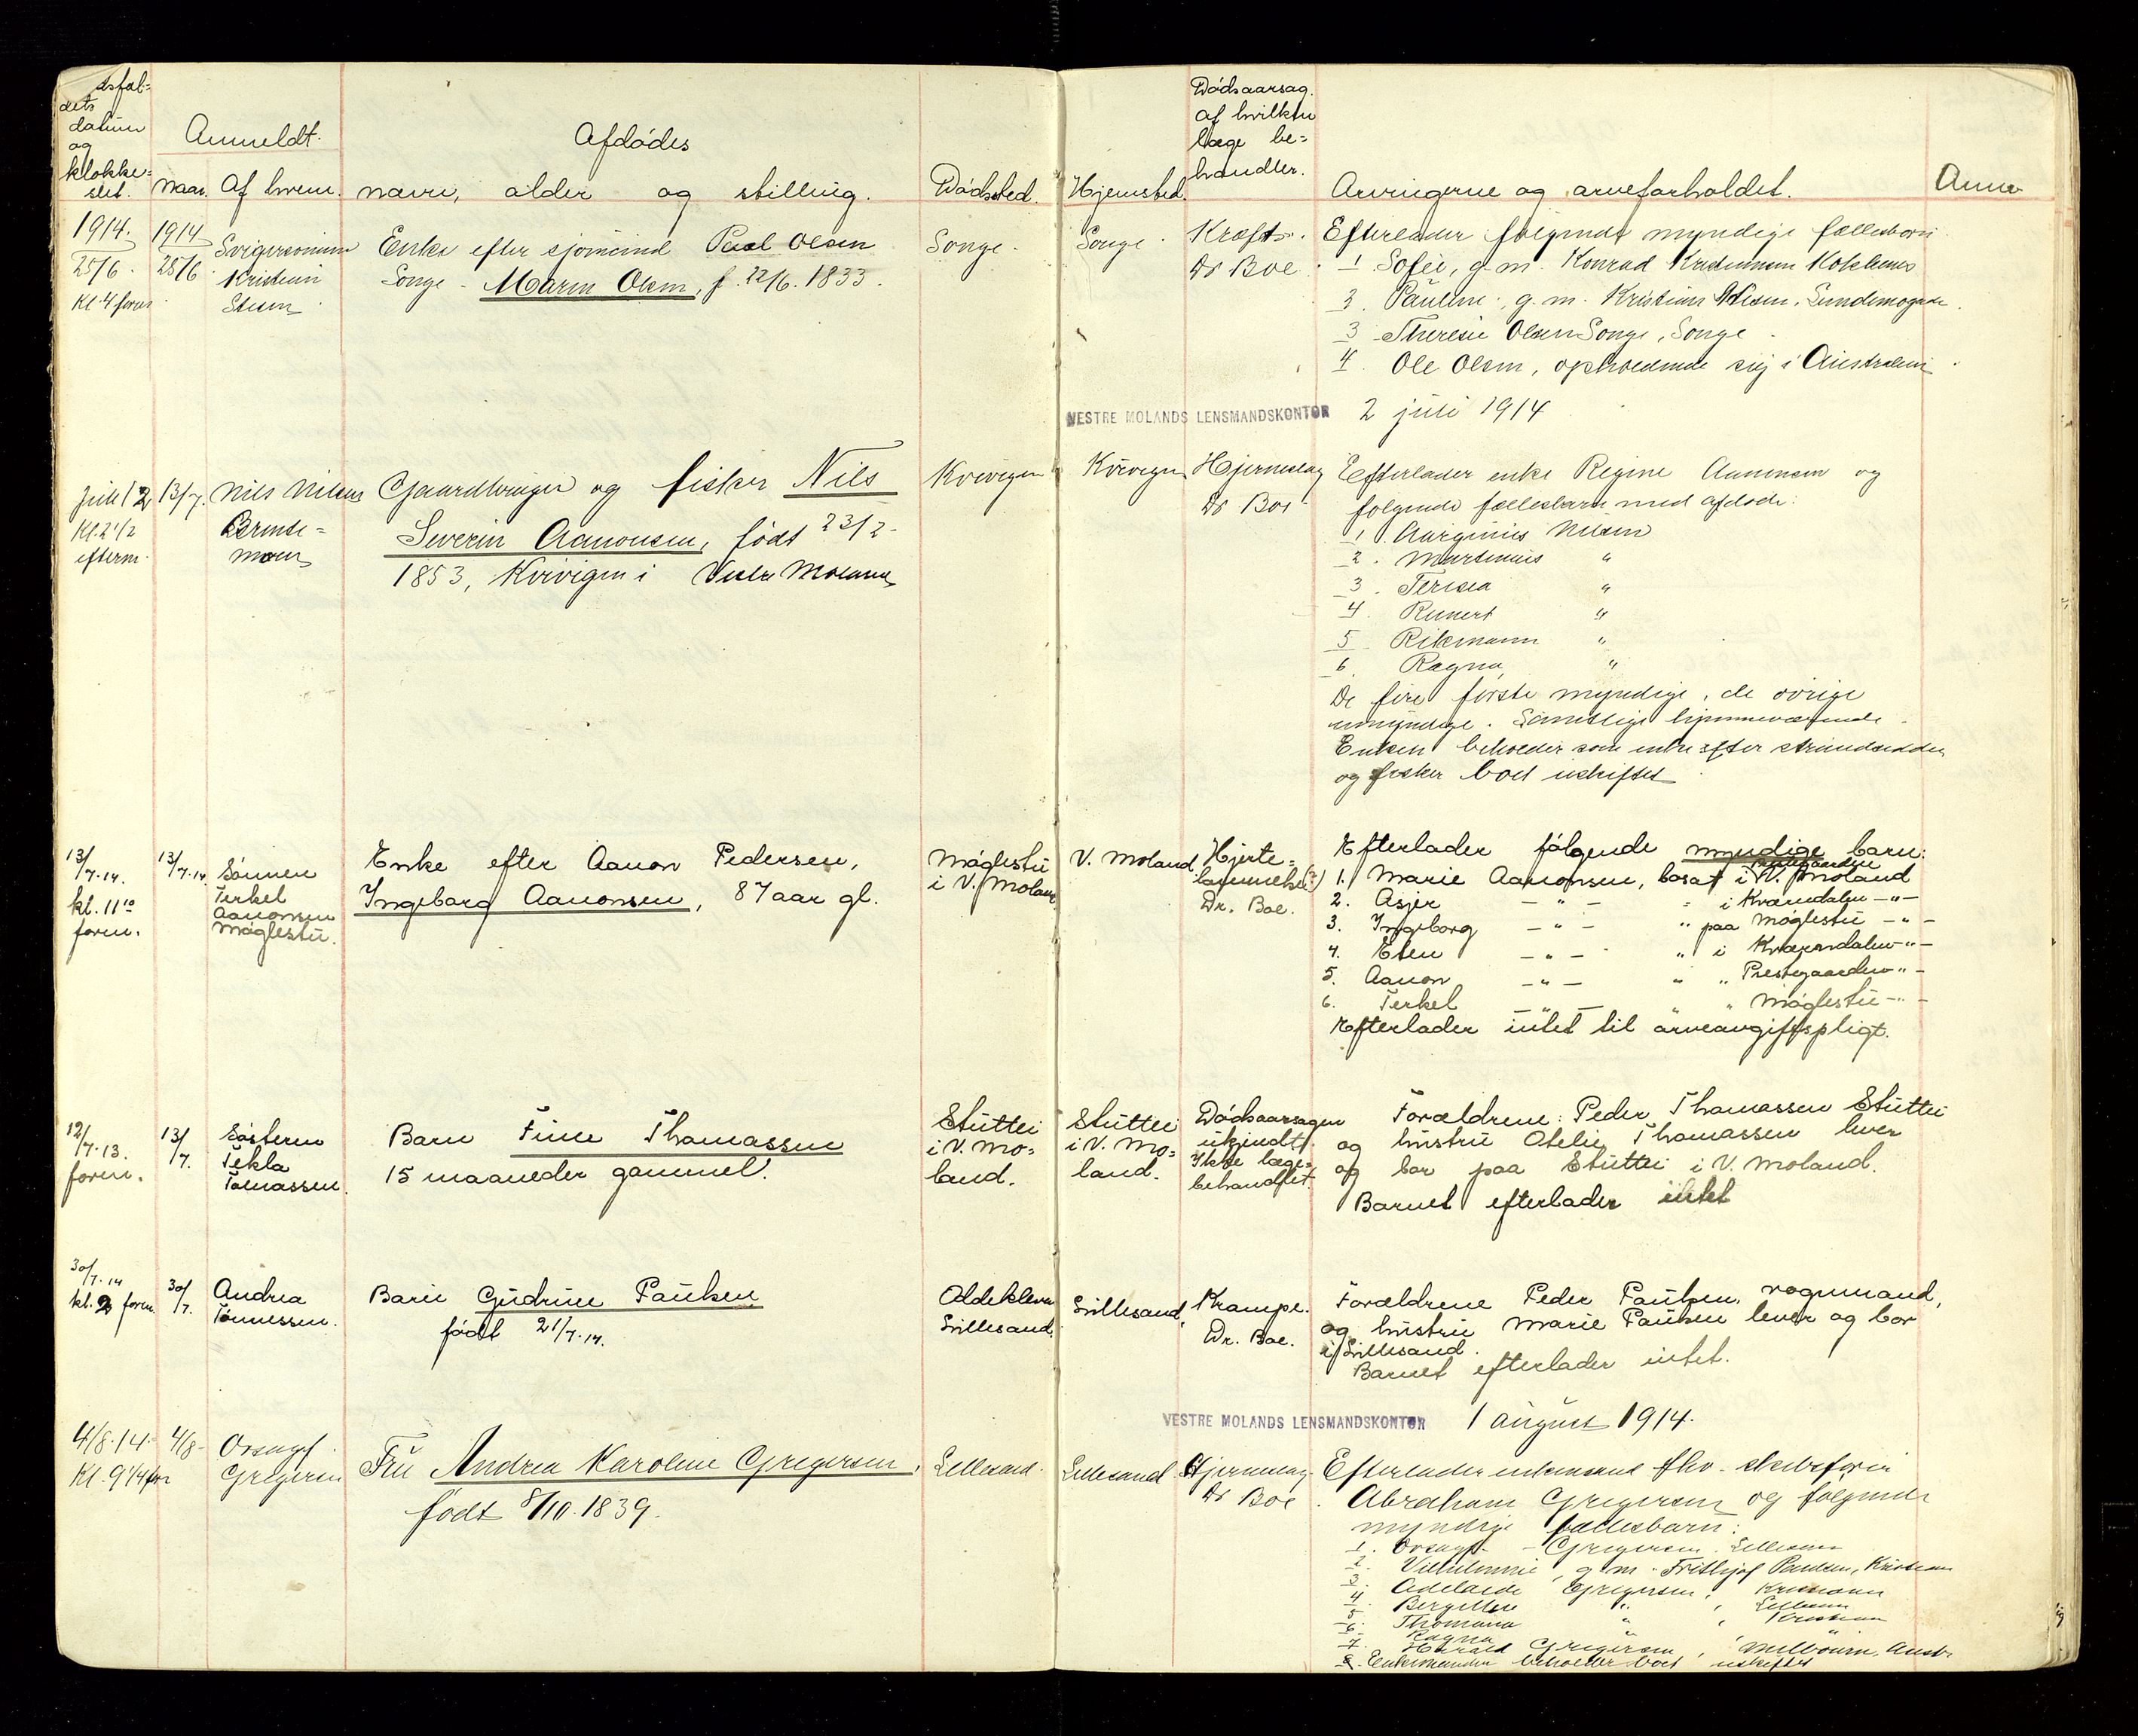 dsfal-
dets
datum
og
klokke-
slet.
Anmeldt.
naar.
Af hvem.
Afdødes
navn, alder og stilling.
Dødssted.
Hjemsted.
Dødsaarsag.
Af hvilken
læge be-
handler.
Arvingerne og arveforholdet.
Anm
1914.
25/6.
Kl. 4 form
1914
25/6.
Svigersønnen
Kristian
Enke efter sjømand Paul Olsen
Songe - Maren Olsen, f. 22/6. 1833.
Songe.
Songe.
Kræft.
Dr Boe.
Efterlader følgende myndige fællesbarn
1 Sofie, g.m. Konrad
2. Pauline, g.m. Kristian
3 Theresie Olsen Songe, Songe
4. Ole Olsen, opholdende sig i Australien
VESTRE MOLANDS LENSMANDSKONTOR 2 juli 1914
Juli 12
Kl. 2 1/2
efterm.
13/7.
Nils Nilsen
Gaardbruger og fisker Nils
Severin Aanonsen, født 23/2-
1853, Kvivigen i Vestre Moland
Kvivigen
Kvivigen
Hjerneslag
Dr Boe
Efterlader enke Regine Aanonsen og
følgende fællesbarn med afdøde:
1. Nilsen
2. Martinius "
3. Teresea "
4. "
5. Rikmann "
6. Ragna "
De fire første myndige, de øvrige
umyndige. Samtlige hjemmeværende.
Enken beholder som enke efter strandsidder
og fisker boet uskiftet
13/7.14.
kl. 11 10
form.
13/7.14.
Sønnen
Terkel
Aanonsen
Møglestu.
Enke efter Aanon Pedersen,
Ingeborg Aanonsen, 87 aar gl.
Møglestu
i V. Moland
V. Moland.
Hjerte-
lammelse (?)
Dr. Boe.
Efterlader følgende myndige barn:
1. Marie Aanonsen, bosat i Prestegaarden V. Moland
2. Asjer - " - " i Kværndalen - " -
3. Ingeborg - " - " paa Møglestu - " -
4. Elen - " - " i Kværndalen - " -
5. Aanon - " - " " Prestegaarden - " -
6. Terkel - " - " " Møglestu - " -
Efterlader intet til arveavgiftspligt.
12/7.13.
form.
13/7.
Søsteren
Tekla
Tomassen.
Barn Fine Thomassen
15 maaneder gammel.
Stuttei
i V. Mo-
land.
Stuttei
i V. Mo-
land.
Dødsaarsagen
ukjendt.
Ikke læge-
behandlet.
Forældrene: Peder Thomassen Stuttei
og hustru Otelie Thomassen lever
og bor paa Stuttei i V. Moland.
Barnet efterlader intet
30/7.14
kl. 2 form.
30/7.
Andrea
Tønnessen.
Barn Gudrun Paulsen
født 21/7.14.
Oldekleven
Lillesand.
Lillesand.
Krampe.
Dr. Boe.
Forældrene Peder Paulsen, vognmand,
og hustru Marie Paulsen lever og bor
i Lillesand.
Barnet efterlader intet.
VESTRE MOLANDS LENSMANDSKONTOR 1 august 1914.
4/8.14.
Kl. 9 1/4 for
4/8-
Gregersen
Fru Andrea Karoline Gregersen,
født 8/10.1839.
Lillesand.
Lillesand.
Hjerneslag.
Dr Boe.
Efterlader enkemand fhv. skibsfører
Abraham Gregersen og følgende
myndige fællesbarn:
1. Gregersen Lillesand
2. Vilhelmine, g.m. Frithjof Paulsen,
3. Adelaide Gregersen,
4. " , Lillesand
5. Thomana " ,
6. Ragna " , "
7. Harald Gregersen, Melbourn, Austr.
Enkemanden beholder boet uskiftet